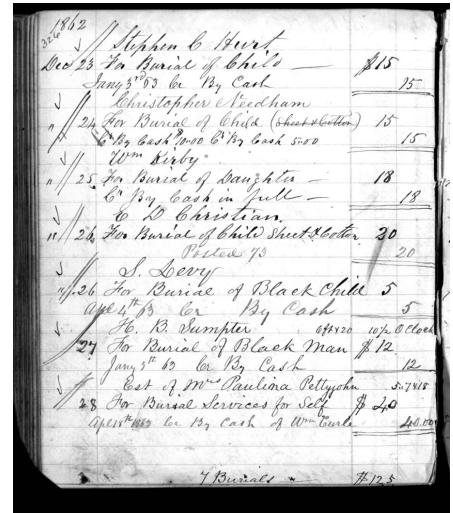 1862
326
Stephen C Hurt
Dec 23 For Burial of Child — $15
Jany 3rd 63 Cr By Cash 15
Christopher Needham
" 24 For Burial of Child (Sheet & Cotton) 15
Cr By Cash $10.00 Cr By Cash 5.00 15
Wm Kirby
" 25 For Burial of Daughter — 18
Cr By Cash in full — 18
E D Christian
" 26 For Burial of Child Sheet & Cotton 20
Posted 73 20
S. Levy
" 26 For Burial of Black Child 5
Apl 4th 63 Cr By Cash 5
H. B. Sumpter 6ft x 20 10½ O Clock
27 For Burial of Black Man $12
Jany 5th 63 Cr By Cash 12
Est of Mrs Paulina Pettyjohn
28 For Burial Services for Self $40
Apl 18th 1863 Cr By Cash of Wm Turle 40.00
7 Burials — $125